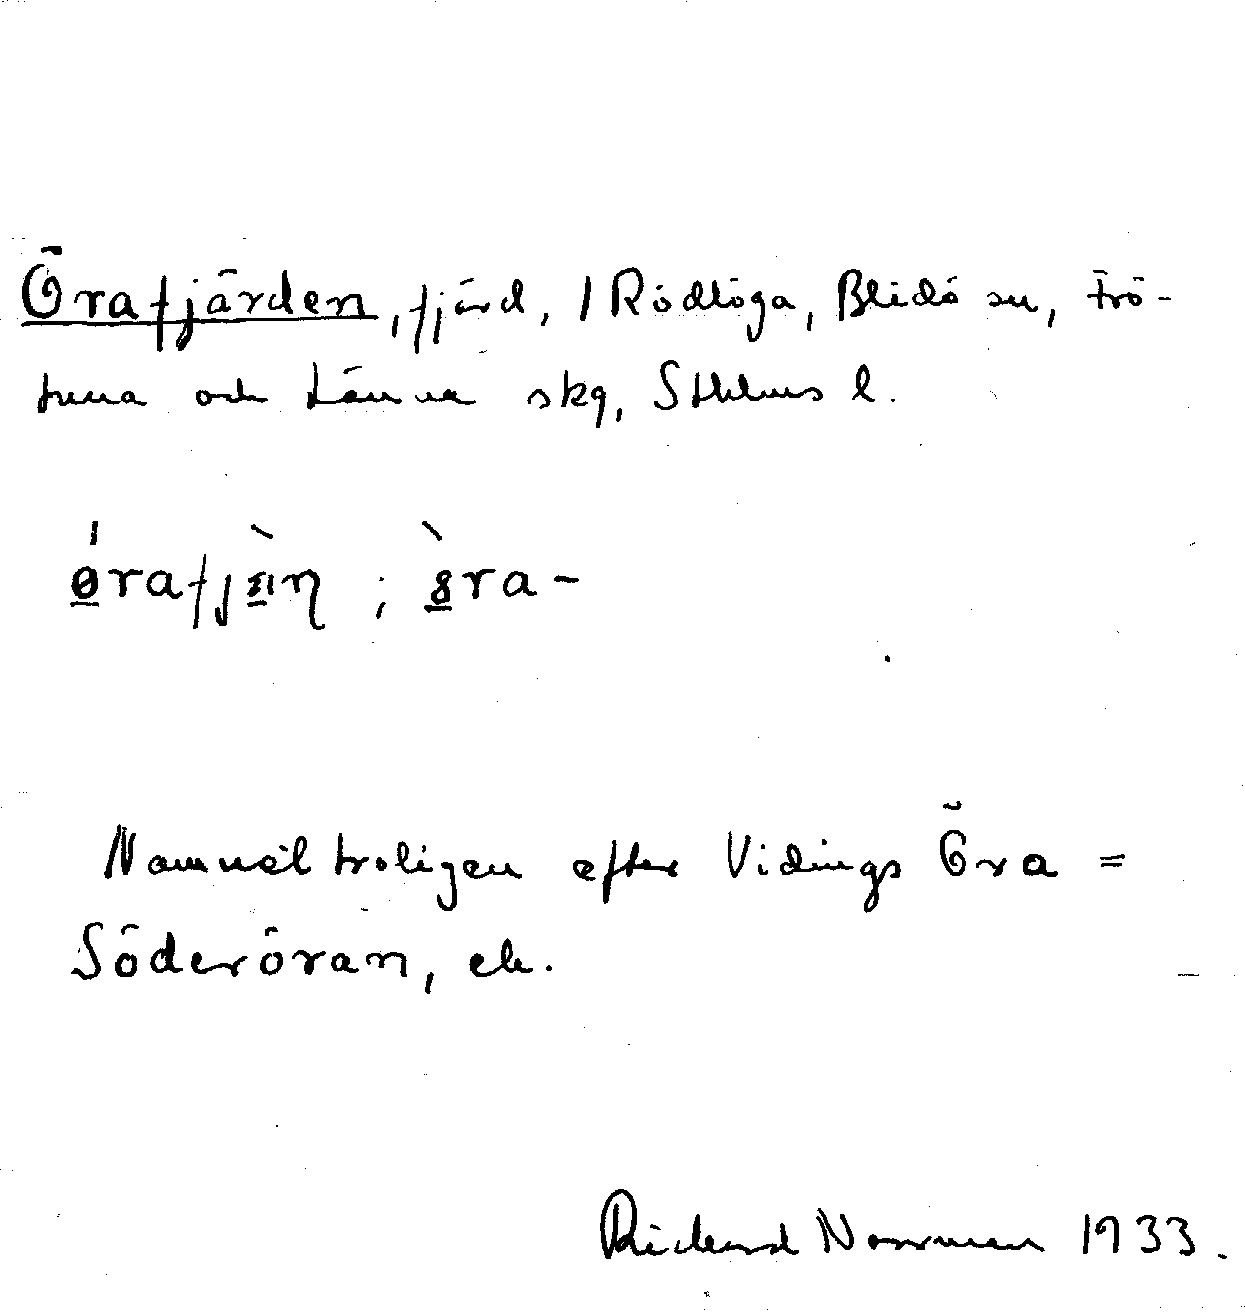 Örafjärden, fjärd, / Rödlöga, Blidö sn, Frö-
tuna och Länna skg, Sthlms l.
Namnet troligen efter Vidings Öra =
Söderöran, ek.
Rickard Norrman 1933.